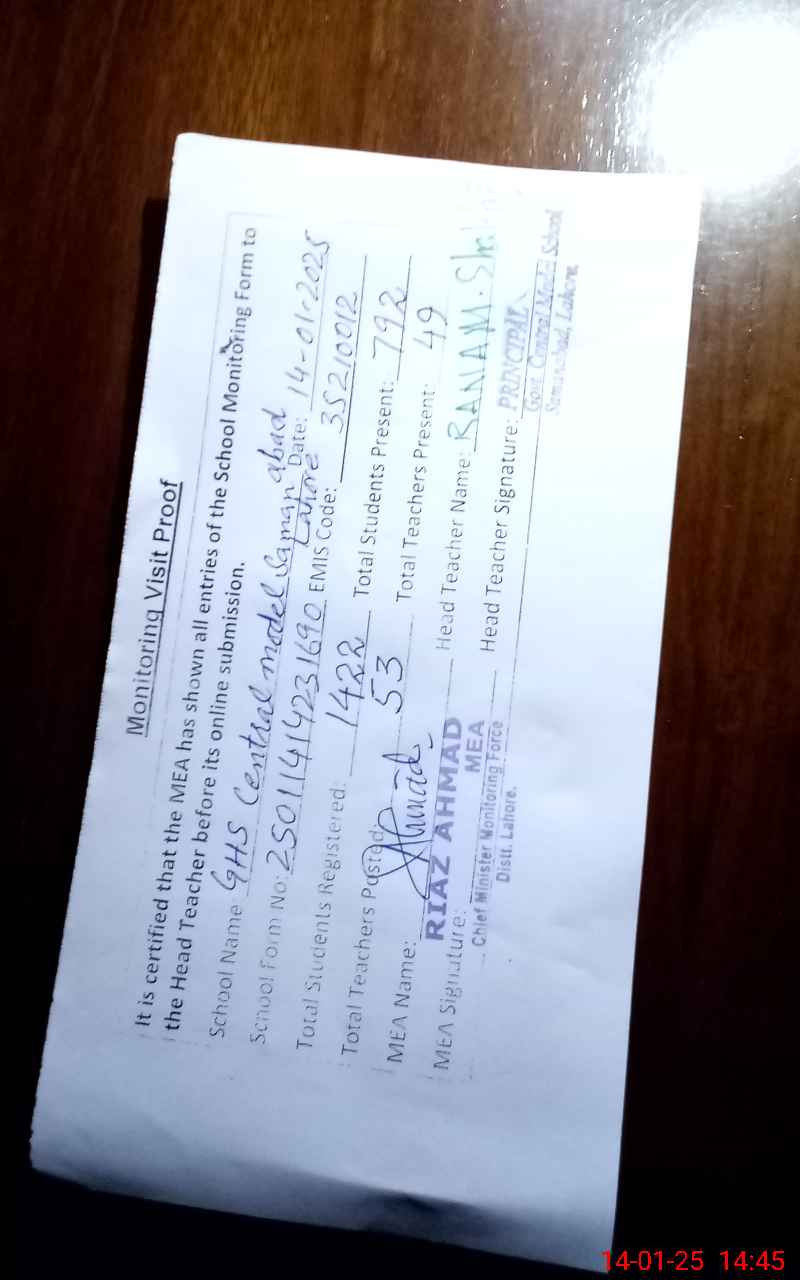 Monitoring Visit Proof
It is certified that the MEA has shown all entries of the School Monitoring Form to
the Head Teacher before its online submission.
School Name GHS Central model Saman abad Lahore Date: 14-01-2025
School Form No: 2501141423 1690 EMIS Code: 35210012
Total Students Registered: 1422 Total Students Present: 792
Total Teachers Posted: 53 Total Teachers Present: 49
MEA Name: Head Teacher Name: RANA M.
RIAZ AHMAD
MEA Signature: Head Teacher Signature: PRINCIPAL
MEA
Chief Minister Monitoring Force
Distt. Lahore.
Govt. Central Model School
Samanabad, Lahore
14-01-25 14:45